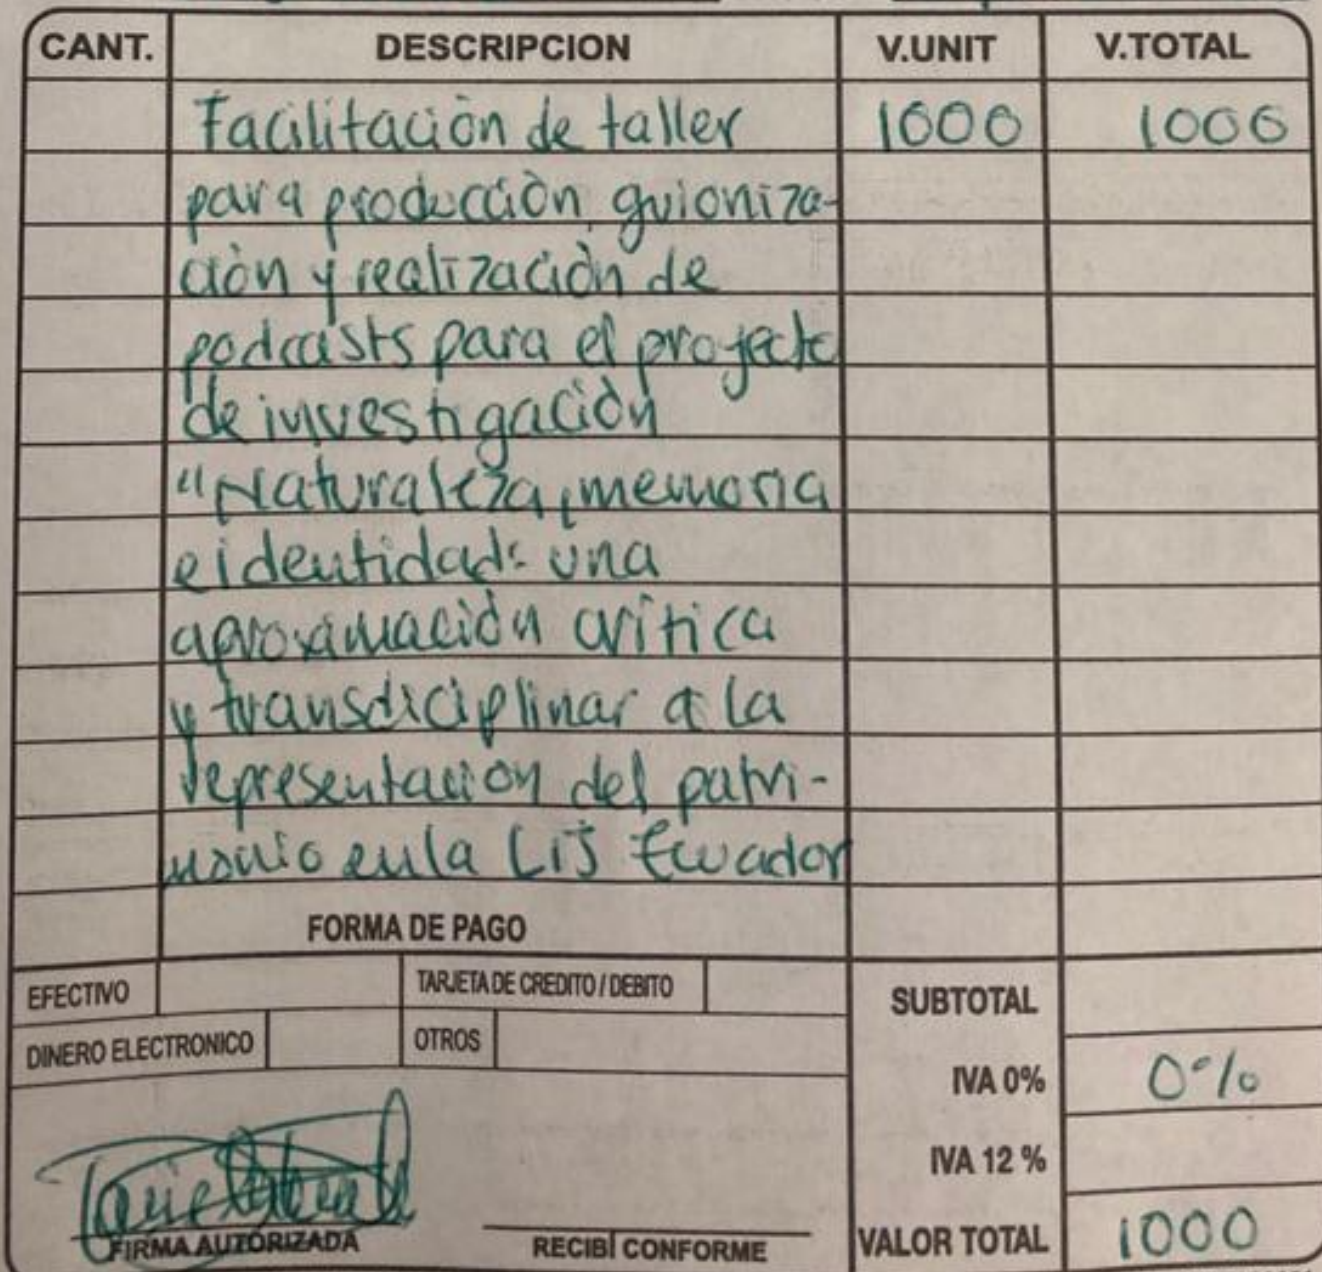 CANT. DESCRIPCION V.UNIT V.TOTAL
Facilitación de taller 1000 1000
para producción, guioniza-
ción y realización de
podcasts para el proyecto
de investigación
"Naturaleza, memoria
e identidad: una
aproximación crítica
y transdiciplinar a la
representación del patri-
monio en la LIJ Ecuador
FORMA DE PAGO
EFECTIVO TARJETA DE CREDITO / DEBITO SUBTOTAL
DINERO ELECTRONICO OTROS
IVA 0% 0%
IVA 12 %
FIRMA AUTORIZADA RECIBÍ CONFORME VALOR TOTAL 1000